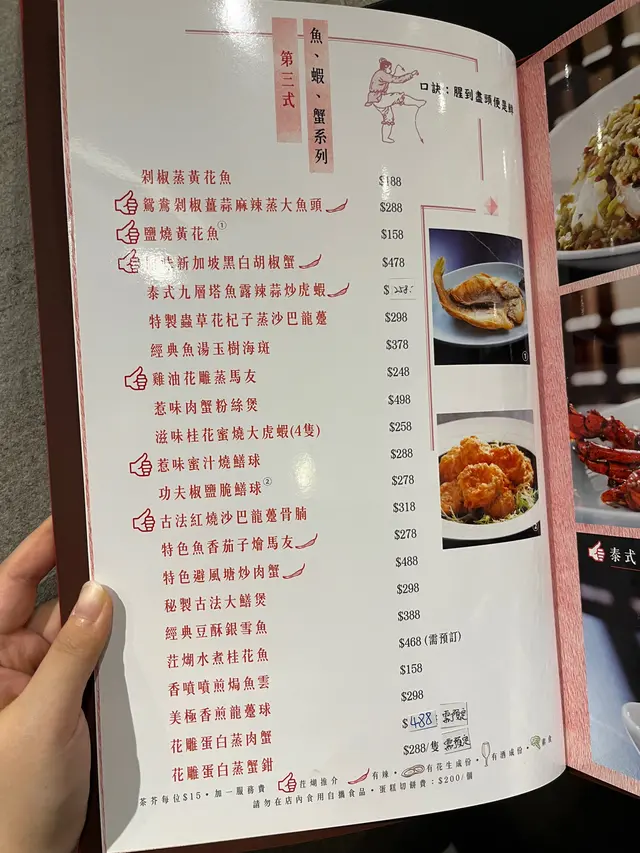 魚、蝦、蟹系列
第三式
口訣：腥到盡頭便是鮮
剁椒蒸黃花魚 $188
鴛鴦剁椒薑蒜麻辣蒸大魚頭 $288
鹽燒黃花魚① $158
新加坡黑白胡椒蟹 $478
泰式九層塔魚露辣蒜炒虎蝦 $
特製蟲草花杞子蒸沙巴龍躉 $298
經典魚湯玉樹海斑 $378
雞油花雕蒸馬友 $248
惹味肉蟹粉絲煲 $498
滋味桂花蜜燒大虎蝦(4隻) $258
惹味蜜汁燒鱔球 $288
功夫椒鹽脆鱔球② $278
古法紅燒沙巴龍躉骨腩 $318
特色魚香茄子燴馬友 $278
特色避風塘炒肉蟹 $488
秘製古法大鱔煲 $298
經典豆酥銀雪魚 $388
水煮桂花魚 $468 (需預訂)
香噴噴煎焗魚雲 $158
美極香煎龍躉球 $298
花雕蛋白蒸肉蟹 $488 需預定
花雕蛋白蒸蟹鉗 $288/隻 需預定
推介 有辣 · 有花生成份 · 有酒成份 · 素食
茶芥每位$15 · 加一服務費
請勿在店內食用自攜食品 · 蛋糕切餅費：$200/個
①
泰式